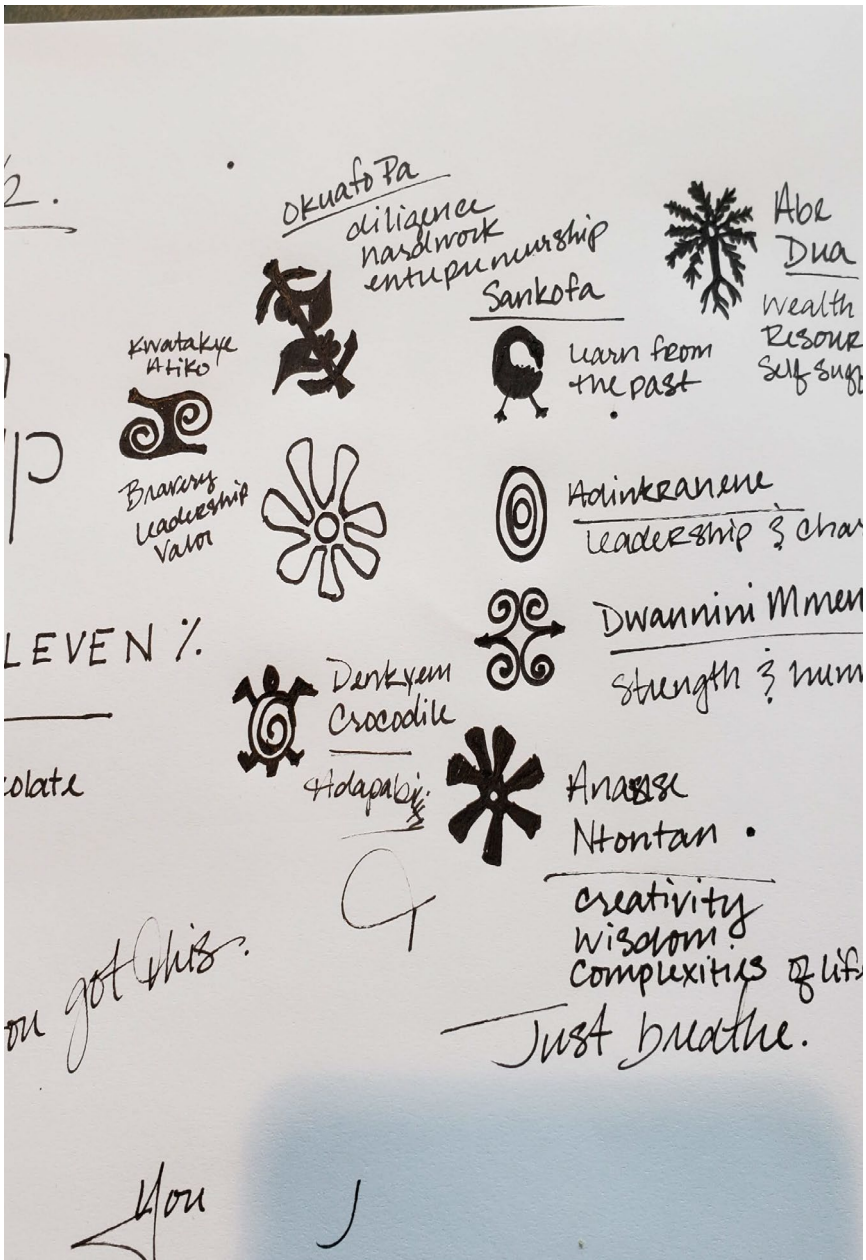 2.
Okuafo Pa
diligence
hardwork
entrepreneurship
Abe
Dua
Wealth
Resour
Self Suff
Sankofa
learn from
the past
Kwatakye
Atiko
Bravery
leadership
Valor
Adinkranene
Leadership & Char
Dwannini Mmen
Strength & hum
LEVEN %
Denkyem
Crocodile
Adapabi
colate
Ananse
Ntontan
Creativity
Wisdom
Complexities of life
ou got this.
Just breathe.
You